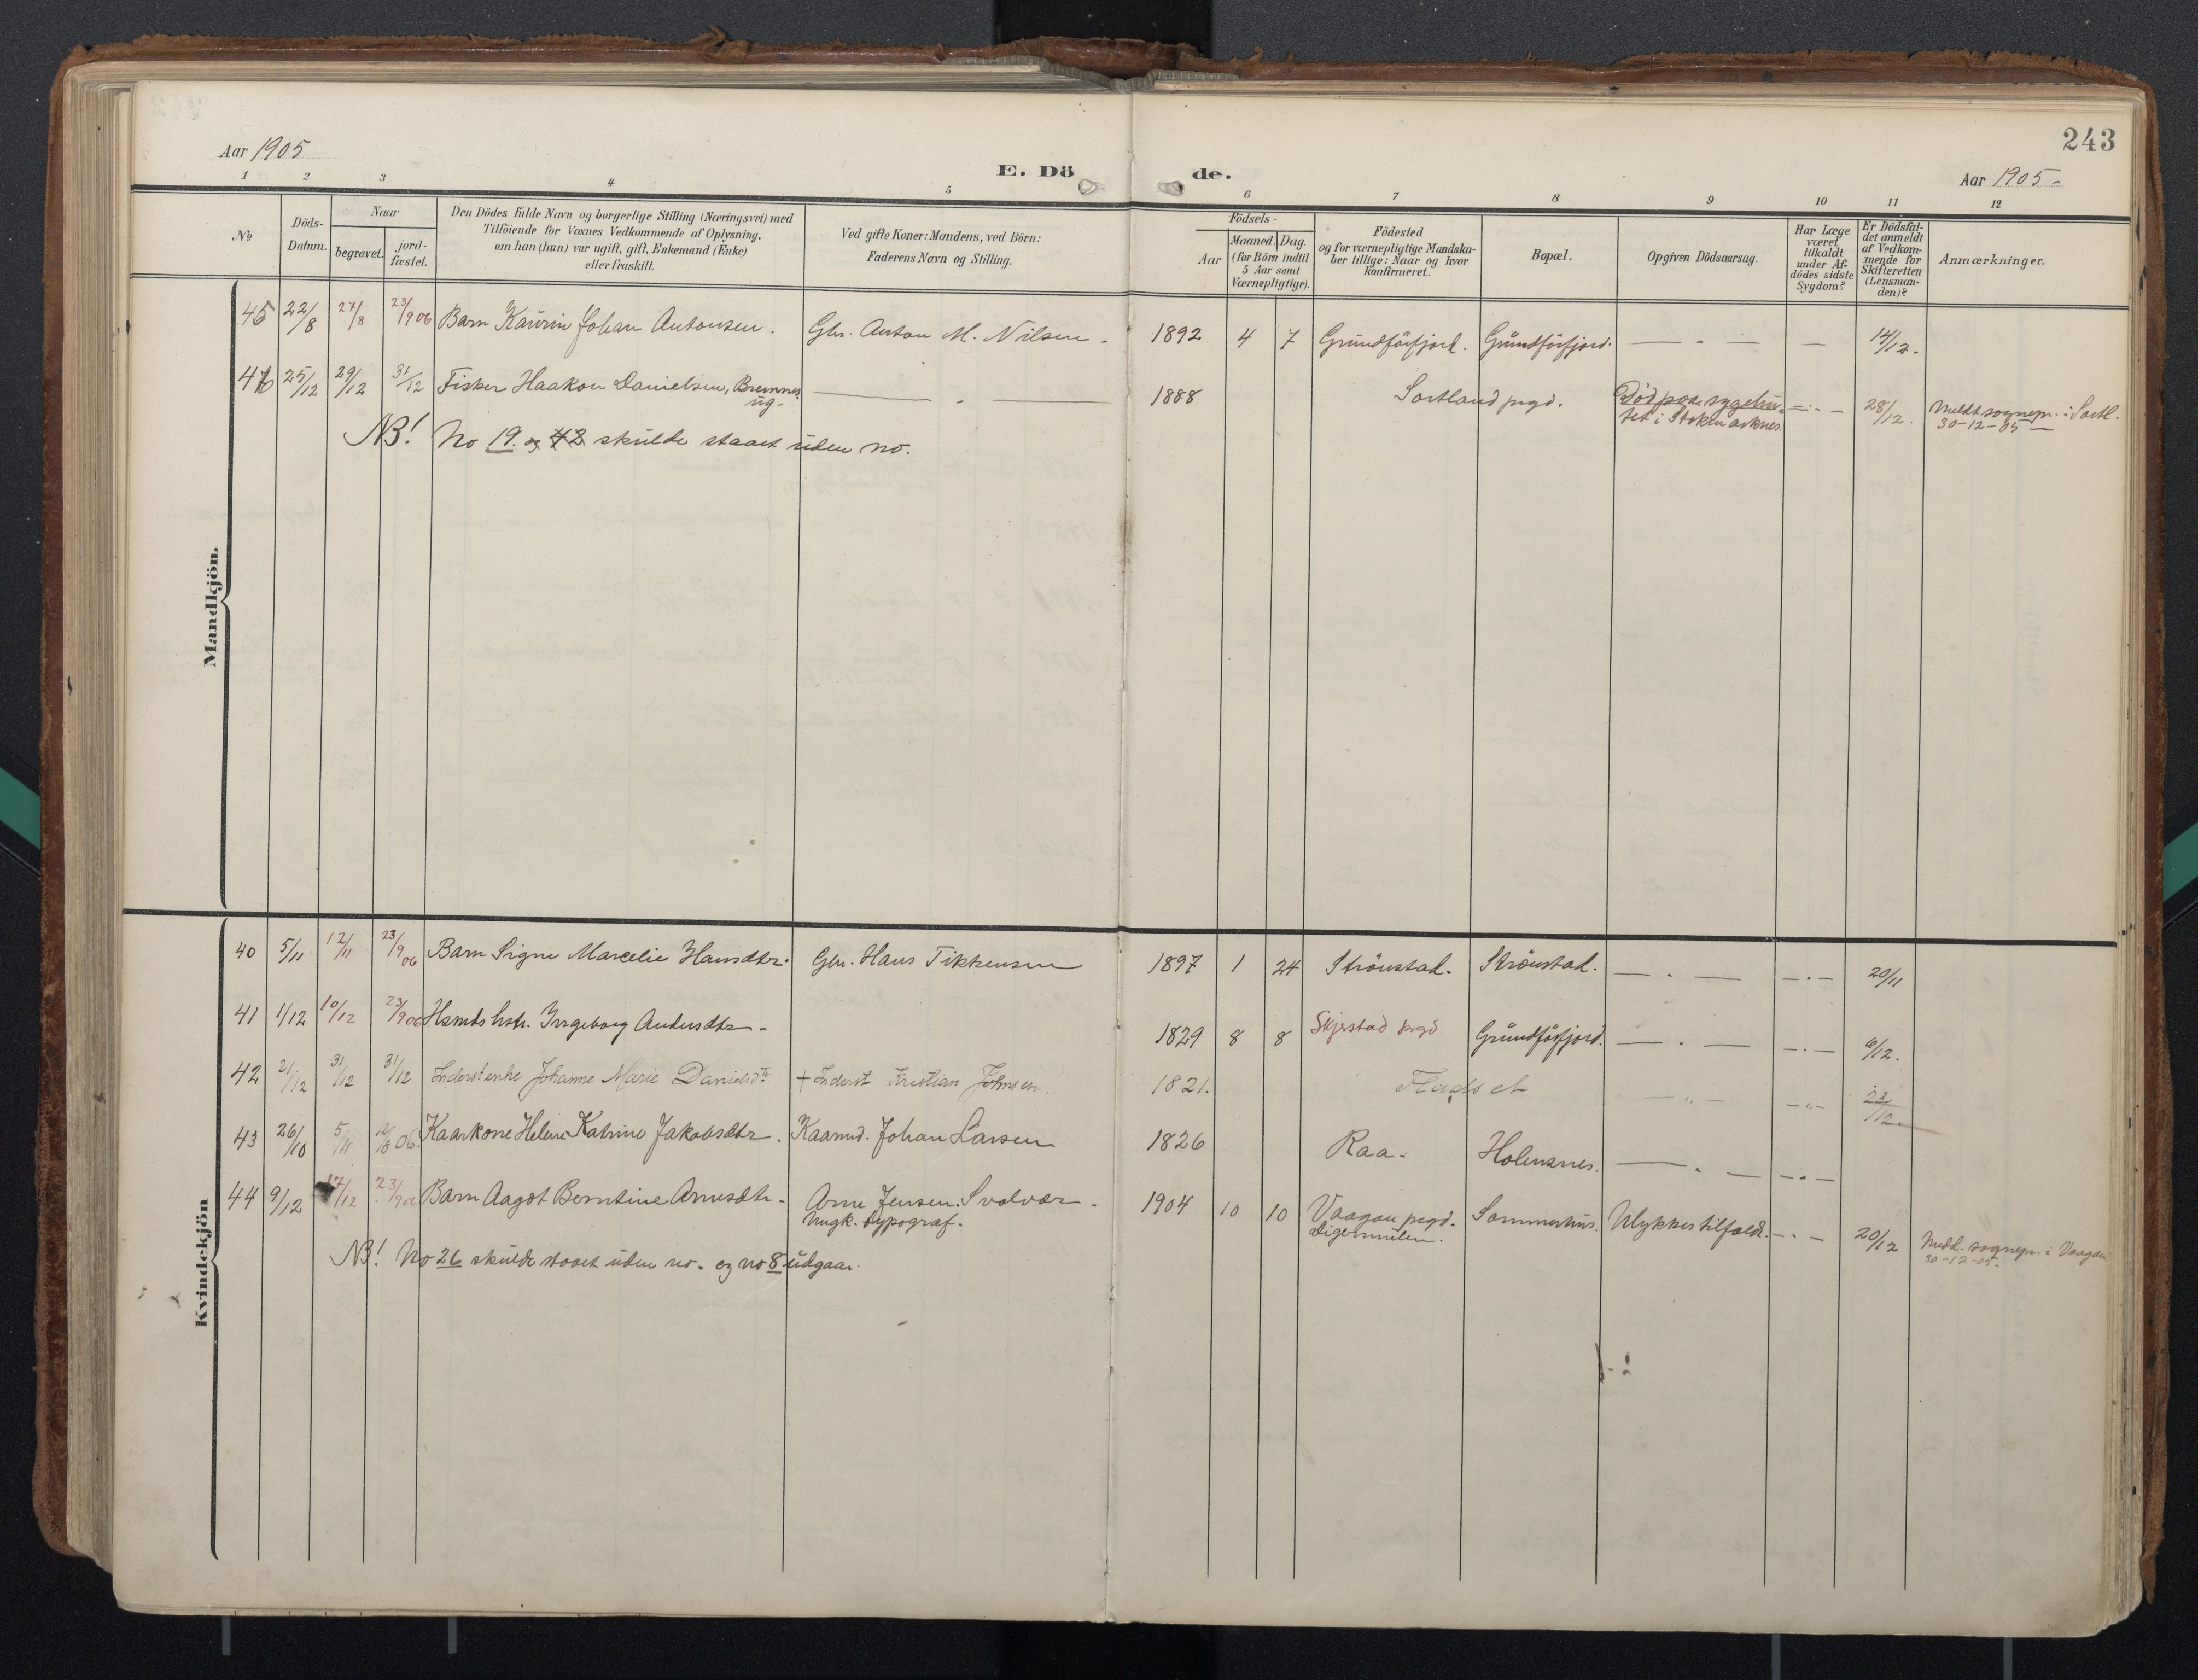 243
Aar 1905
E. Dö
de.
Aar 1905
1 2 3 4 5 6 7 8 9 10 11 12
No
Döds-
Datum.
Naar
begravet.
jord-
fæstet.
Den Dödes fulde Navn og borgerlige Stilling (Næringsvei) med
Tilföiende for Voxnes Vedkommende af Oplysning,
om han (hun) var ugift, gift, Enkemand (Enke)
eller fraskilt.
Ved gifte Koner: Mandens, ved Börn:
Faderens Navn og Stilling.
Födsels-
Aar
Maaned.
Dag.
(for Börn indtil
5 Aar samt
Værnepligtige).
Födested
og for værnepligtige Mandska-
ber tillige: Naar og hvor
Konfirmeret.
Bopæl.
Opgiven Dödsaarsag.
Har Læge
været
tilkaldt
under Af-
dödes sidste
Sygdom?
Er Dödsfal-
det anmeldt
af Vedkom-
mende for
Skifteretten
(Lensman-
den)?
Anmærkninger.
Mandkjön.
45 22/8 27/8 23/9 06 Barn Kaurin Johan Antonsen. Gbr. Anton M. Nilsen - 1892 4 7 Grundförfjord. Grundförfjord. — " — — 14/12.
46 25/12 29/12 31/12 Fisker Haakon Danielsen, Bremnes — " — 1888 Sortland prgd. Död paa sygehu- — " — 28/12. Meldt sognepr. i Sortl.
ug.
set i Stokmarknes.
30-12-05
NB! No 19. og 42 skulde staaet uden no.
Kvindekjön
40 5/11 12/11 23/9 06 Barn Signe Marcelie Hansdtr. Gbr. Hans Tikkensen 1897 1 24 Strönstad. Strönstad. — " — — " — 20/11
41 1/12 10/12 23/9 06 Hsmds hstr. Ingeborg Andersdtr - 1829 8 8 Skjerstad prgd. Grundförfjord. — " — — " — 6/12.
42 21/12 31/12 31/12 Inderstenke Johanne Marie Danielsdtr + Inderst Kristian Johnsen. 1821. Fladset — " — — " — 23/12.
43 26/10 5/11 06. Kaarkone Helene Katrine Jakobsdtr. Kaarmd. Johan Larsen 1826 Raa. Holmsnes. — " — — " —
44 9/12 17/12 23/9 06 Barn Aagot Berntine Arnesdtr - Arne Jensen. Svolvær - 1904 10 10 Vaagan prgd. Sommerhus. Ulykkestilfælde. — " — 20/12 Medd. sognepr. i Vaagan
Ungk. typograf.
Digermulen.
30-12-05.
NB! No 26 skulde staaet uden no. og no 8 udgaar.